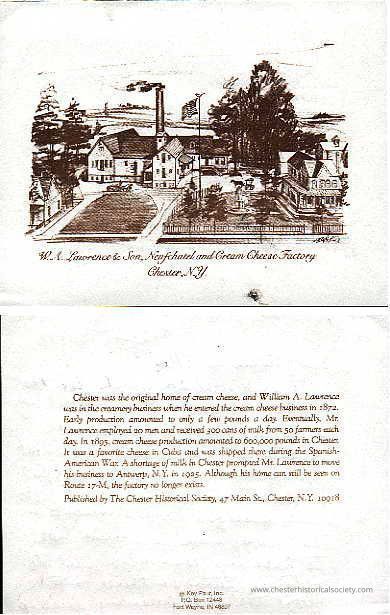 W. A. Lawrence & Son, Neufchatel and Cream Cheese Factory
Chester, N.Y.
Chester was the original home of cream cheese, and William A. Lawrence
was in the creamery business when he entered the cream cheese business in 1872.
Early production amounted to only a few pounds a day. Eventually, Mr.
Lawrence employed 20 men and received 300 cans of milk from 50 farmers each
day. In 1895, cream cheese production amounted to 600,000 pounds in Chester.
It was a favorite cheese in Cuba and was shipped there during the Spanish-
American War. A shortage of milk in Chester prompted Mr. Lawrence to move
his business to Antwerp, N.Y. in 1925. Although his home can still be seen on
Route 17-M, the factory no longer exists.
Published by The Chester Historical Society, 47 Main St., Chester, N.Y. 10918
© Key Four, Inc.
P.O. Box 12448
Fort Wayne, IN 46857
www.chesterhistoricalsociety.com